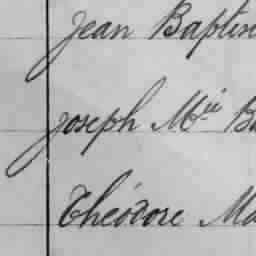 Jean Baptis
Joseph Mie B
Théodore Ma